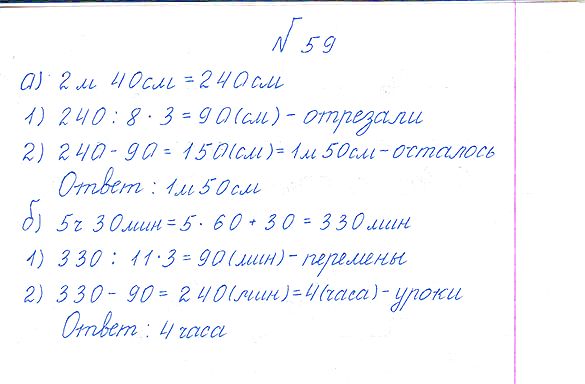 № 59
а) 2 м 40 см = 240 см
1) 240 : 8 · 3 = 90 (см) - отрезали
2) 240 - 90 = 150 (см) = 1 м 50 см - осталось
Ответ : 1 м 50 см
б) 5 ч 30 мин = 5 · 60 + 30 = 330 мин
1) 330 : 11 · 3 = 90 (мин) - перемены
2) 330 - 90 = 240 (мин) = 4 (часа) - уроки
Ответ : 4 часа